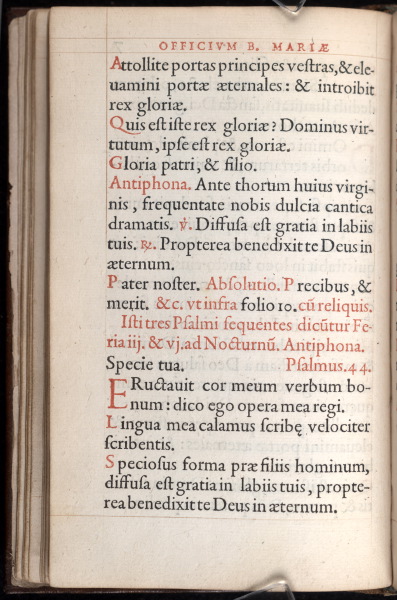 OFFICIVM B. MARIÆ
Attollite portas principes veſtras,&ele-
uamini portæ æternales: & introibit
rex gloriæ.
Quis eſt iſte rex gloriæ? Dominus vir-
tutum, ipſe eſt rex gloriæ.
Gloria patri, & filio.
Antiphona. Ante thorum huius virgi-
nis, frequentate nobis dulcia cantica
dramatis. ℣. Diffuſa eſt gratia in labiis
tuis. ℞. Propterea benedixit te Deus in
æternum.
Pater noſter. Abſolutio. Precibus, &
merit. &c. vt infra folio 10. cũ reliquis.
Iſti tres Pſalmi ſequentes dicũtur Fe-
ria iij. & vj. ad Nocturnũ. Antiphona.
Specie tua. Pſalmus. 44.
ERuctauit cor meum verbum bo-
num: dico ego opera mea regi.
Lingua mea calamus ſcribę velociter
ſcribentis.
Specioſus forma præ filiis hominum,
diffuſa eſt gratia in labiis tuis, propte-
rea benedixit te Deus in æternum.